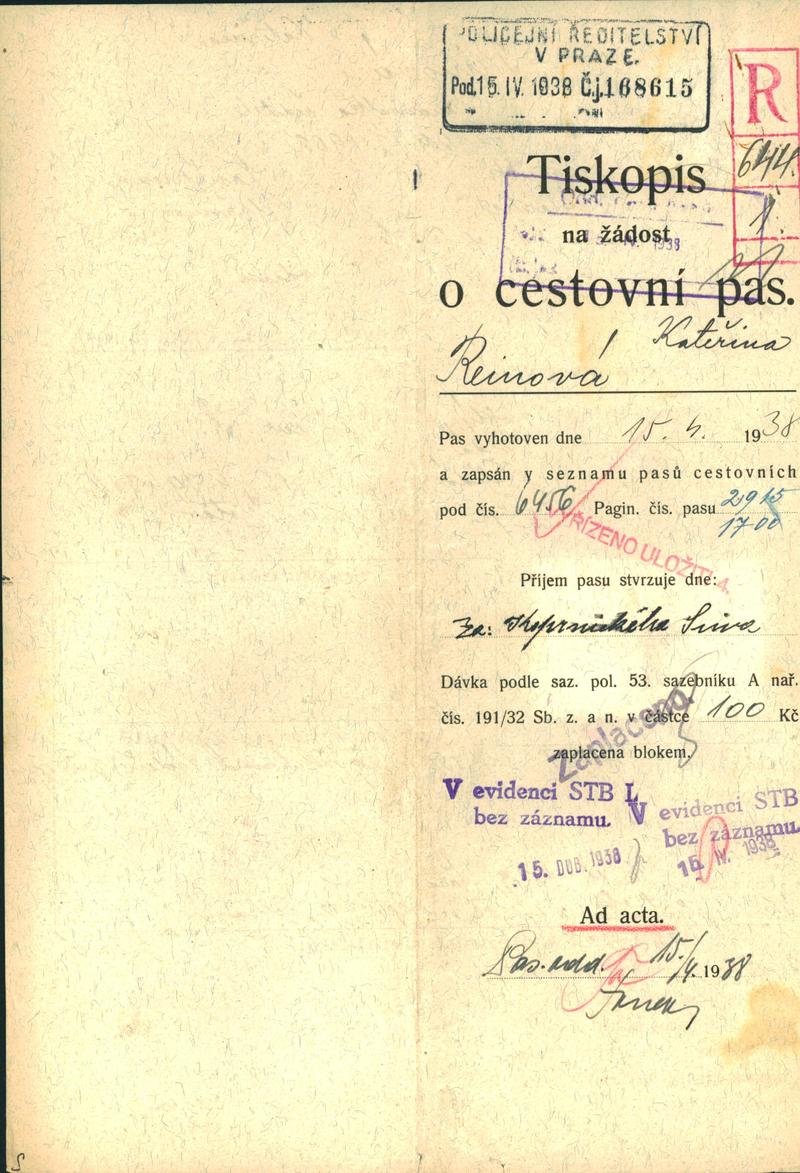 POLICEJNÍ ŘEDITELSTVÍ
V PRAZE.
Pod. 15. IV. 1938 Č.j. 168615
R
644.
1.
Tiskopis
na žádost
o cestovní pas.
Kateřina
Reinová
Pas vyhotoven dne 15. 4. 1938
a zapsán v seznamu pasů cestovních
pod čís. 6456 Pagin. čís. pasu 2915
1700
VYŘÍZENO ULOŽITI
Příjem pasu stvrzuje dne:
Za:
Dávka podle saz. pol. 53. sazebníku A nař.
čís. 191/32 Sb. z. a n. v částce 100 Kč
Zaplaceno
zaplacena blokem.
V evidenci STB L
bez záznamu.
15. DUB. 1938
V evidenci STB
bez záznamu.
15. IV. 1938
Ad acta.
Pas. odd. 15./4. 1938